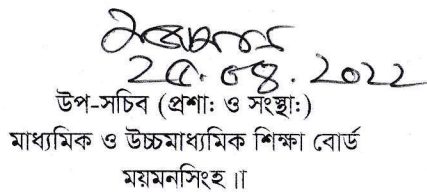 ২৫.০৪.২০২২
উপ-সচিব (প্রশাঃ ও সংস্থাঃ)
মাধ্যমিক ও উচ্চমাধ্যমিক শিক্ষা বোর্ড
ময়মনসিংহ॥